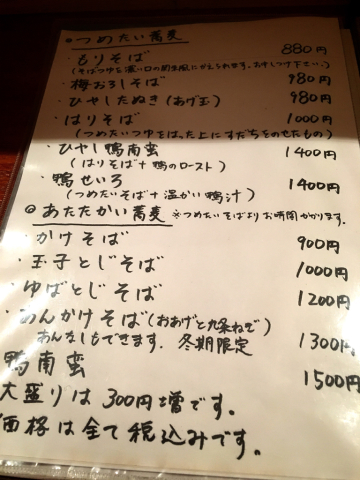 ◎つめたい蕎麦
・もりそば 880円
(そばつゆを濃い口の前生風にかえられます。お申しつけ下さい。)
・梅おろしそば 980円
・ひやしたぬき(あげ玉) 980円
・はりそば 1000円
(つめたいつゆをはった上にすだちをのせたもの)
・ひやし鴨南蛮 1400円
(はりそば+鴨のロースト)
・鴨せいろ 1400円
(つめたいそば+温かい鴨汁)
◎あたたかい蕎麦 ※つめたいそばよりお時間かかります。
・かけそば 900円
・玉子とじそば 1000円
・ゆばとじそば 1200円
・あんかけそば(おあげと九条ねぎ) 1300円
あんなしもできます. 冬期限定
鴨南蛮 1500円
大盛りは300円増です。
価格は全て税込みです。